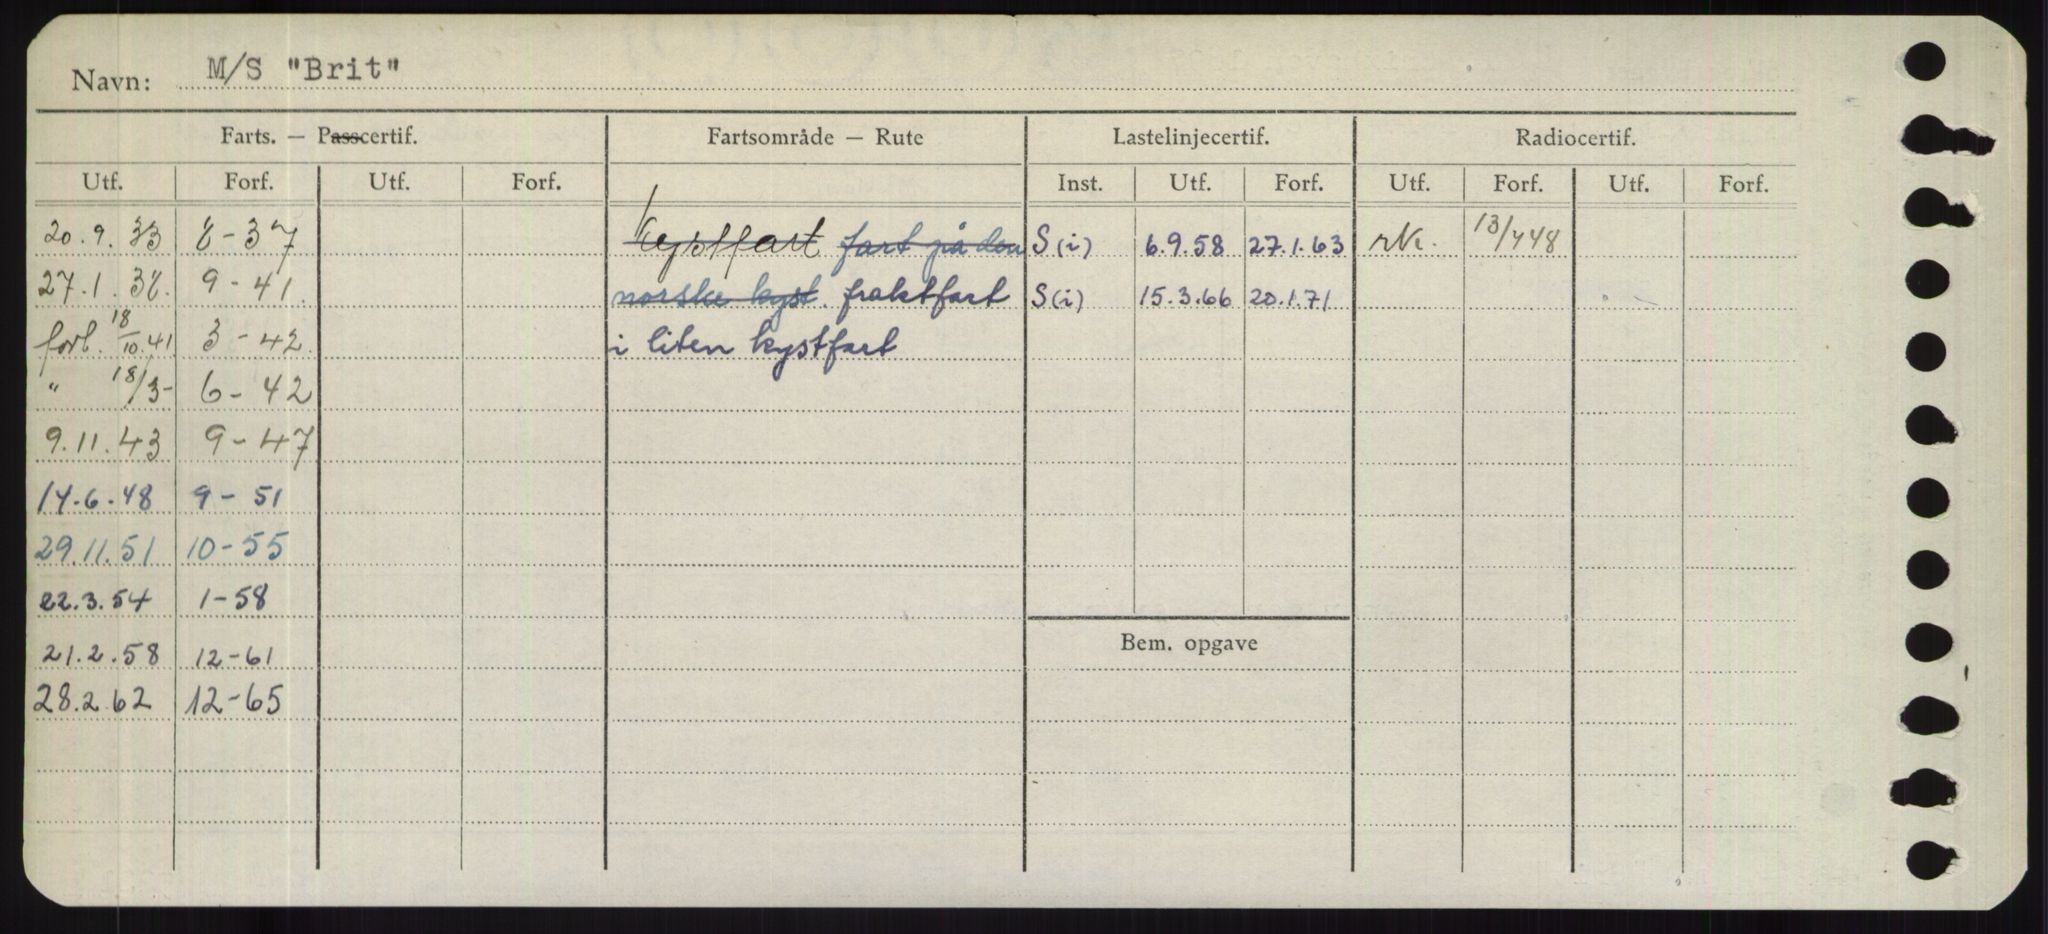 Navn: M/S "Brit"
Farts. — Passcertif. Fartsområde — Rute Lastelinjecertif. Radiocertif.
Utf. Forf. Utf. Forf. Inst. Utf. Forf. Utf. Forf. Utf. Forf.
20.9.33 8-37 Kystfart fart på den S(i) 6.9.58 27.1.63 13/7 48
27.1.38. 9-41. norske kyst. fraktfart S(i) 15.3.66 20.1.71
forl. 18/10.41 3-42. i liten kystfart
" 18/3- 6-42
9.11.43 9-47
14.6.48 9-51
29.11.51 10-55
22.3.54 1-58
21.2.58 12-61
28.2.62 12-65
Bem. opgave